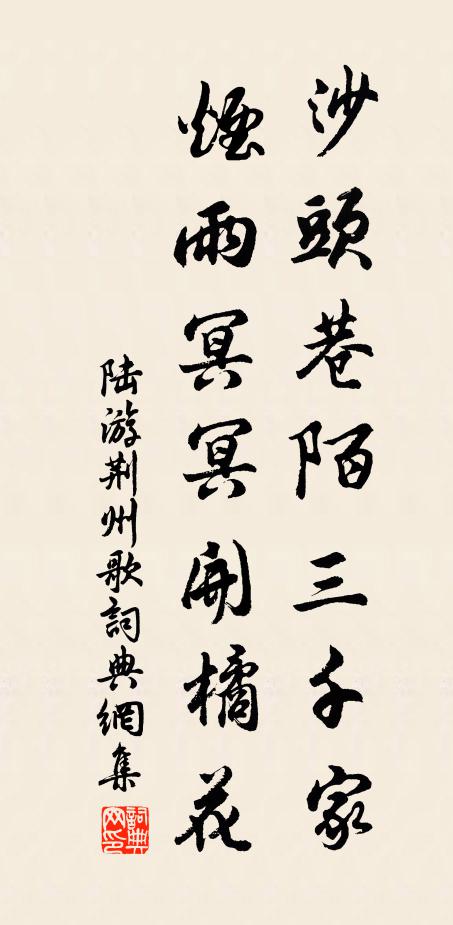 沙頭巷陌三千家
煙雨冥冥開橘花
陆游荆州歌詞典網集
詞典网印